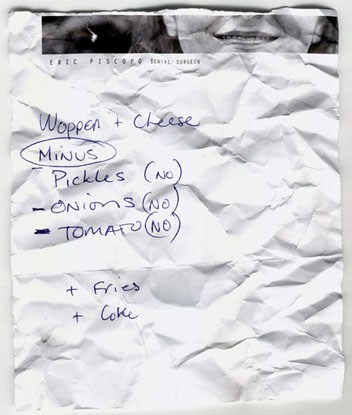 ERIC PISCOPO DENTAL SURGEON
Wopper + Cheese
MINUS
- Pickles (NO)
- ONIONS (NO)
- TOMATO (NO)
+ Fries
+ Coke